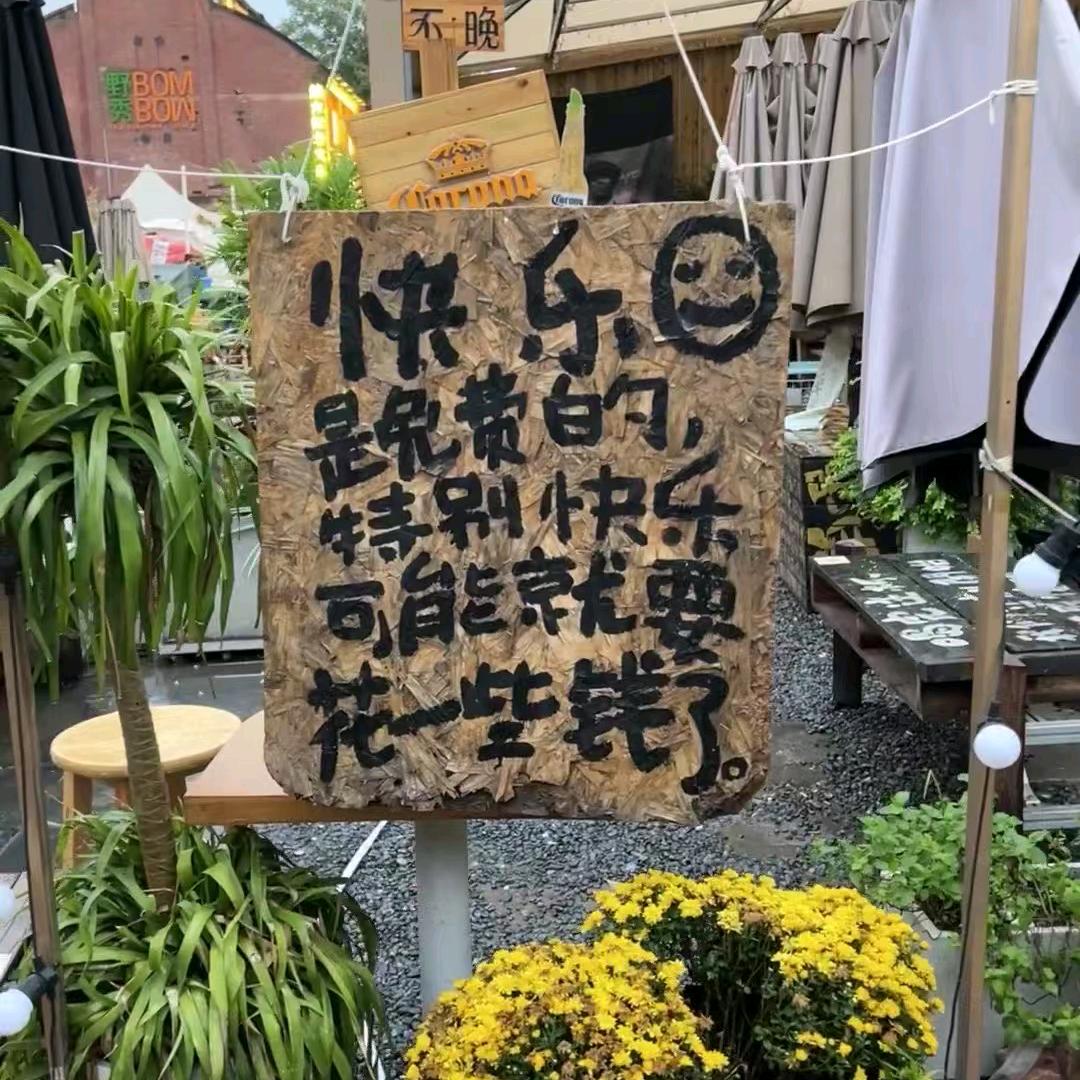 不·晚
野秀 BOM BOW
Corona
Corona
快乐
是免费的,
特别快乐
可能就要
花一些钱了。